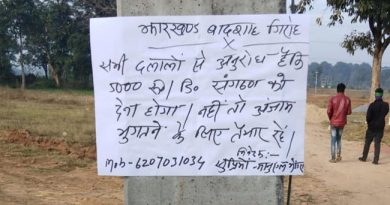 झारखण्ड बादशाह गिरोह
X
सभी दलालों से अनुरोध है कि
5000 रु०/डि० संगठन को
देना होगा। नहीं तो अंजाम
भुगतने के लिए तैयार रहें।
निवेदक:-
Mob- 6207031034 सुप्रिमो-